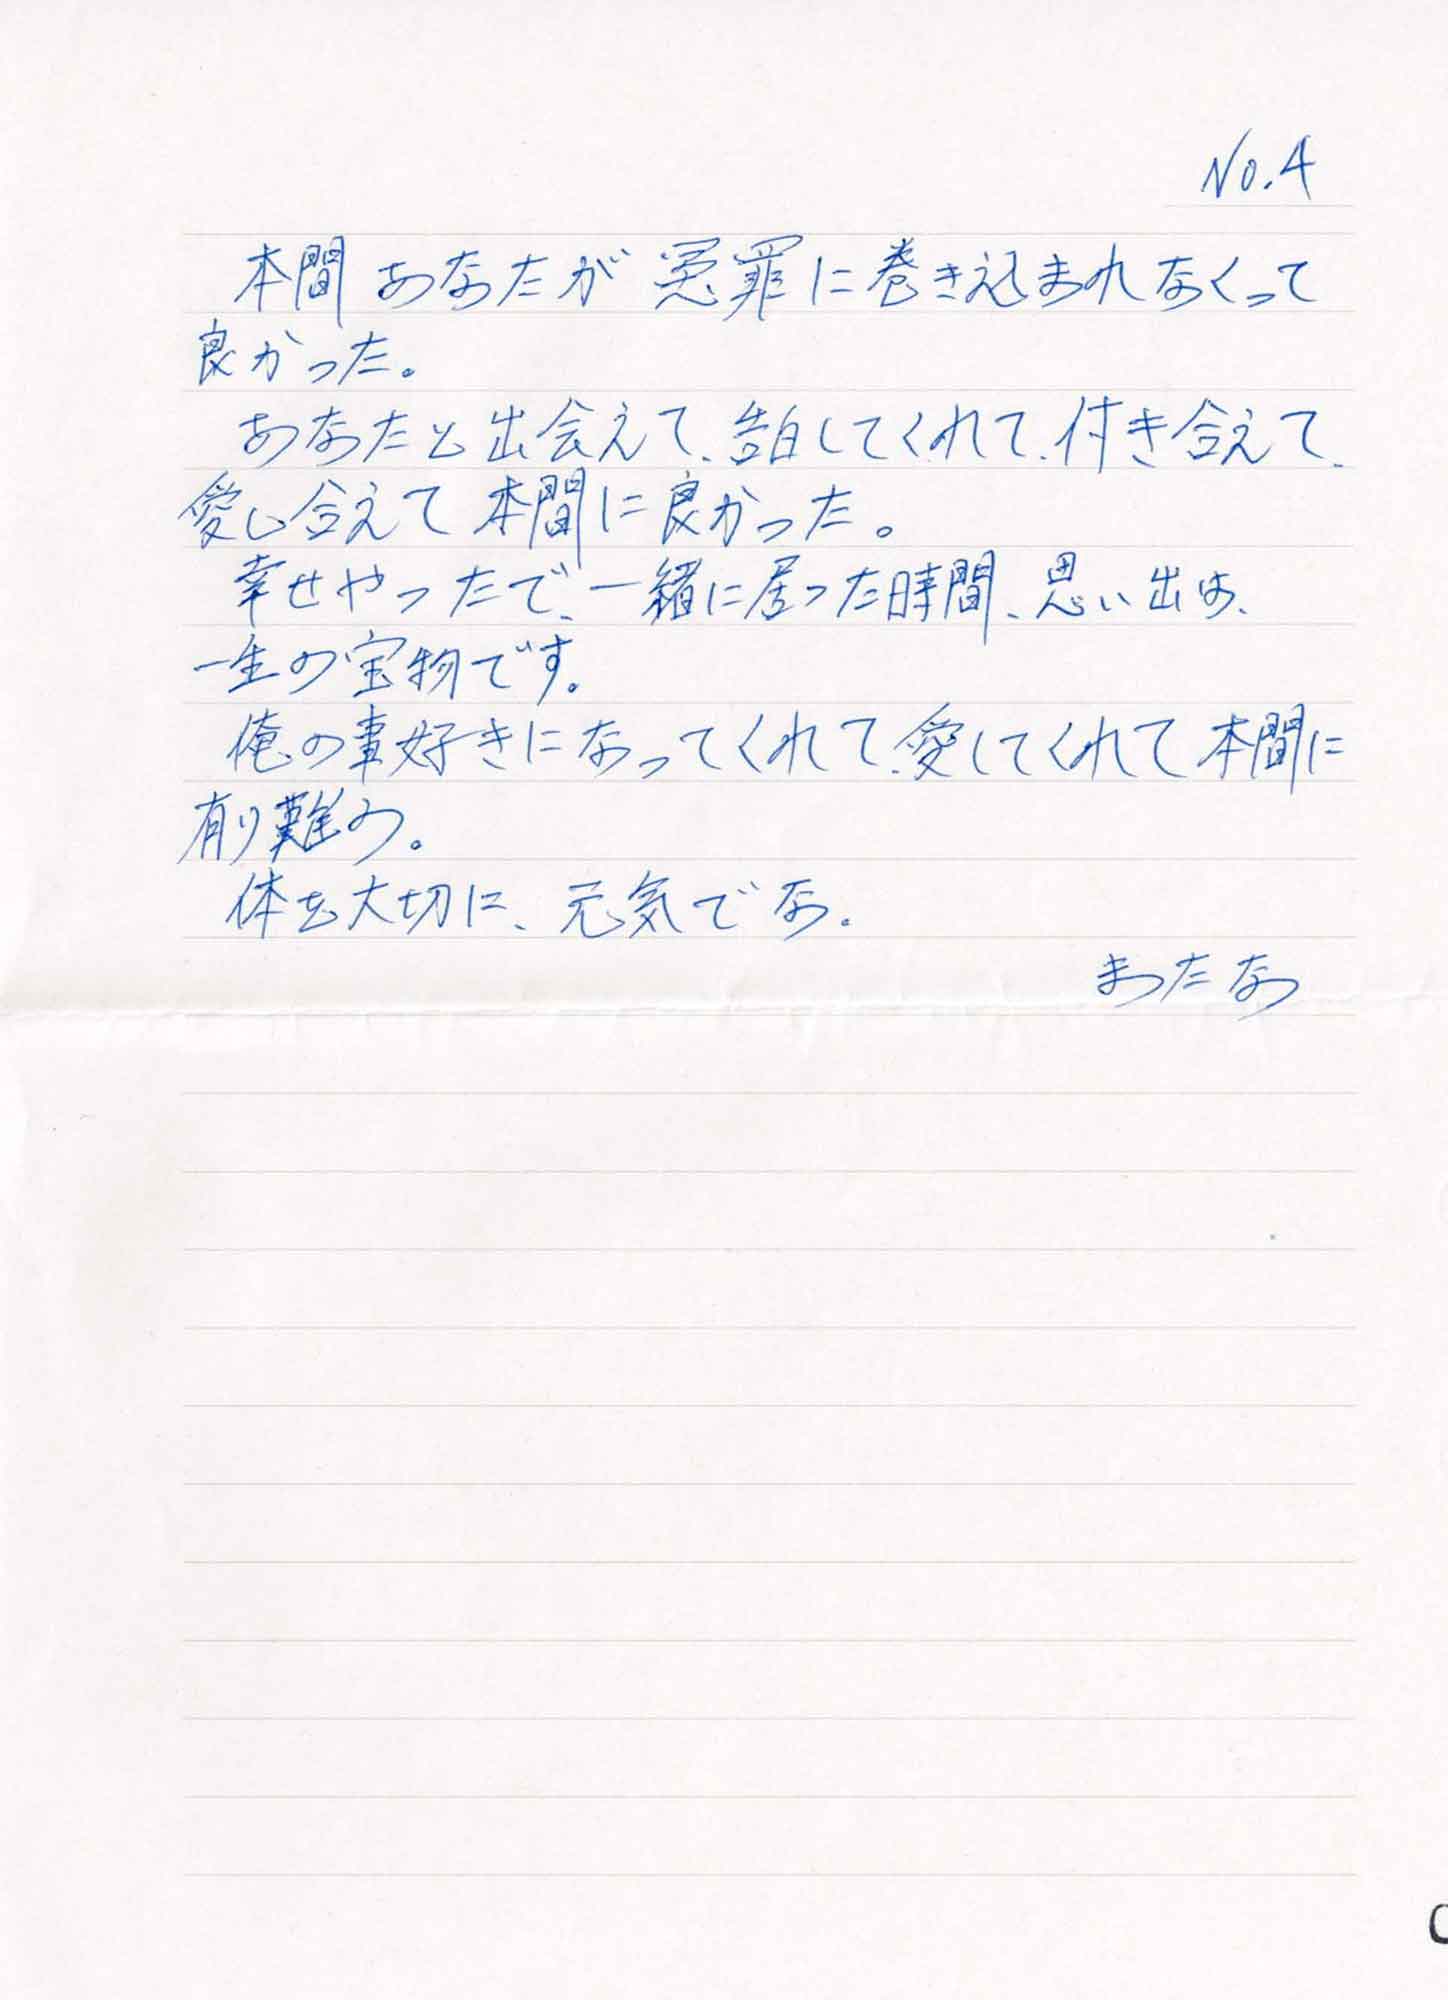 No.4
本間 あなたが冤罪に巻き込まれなくって
良かった。
あなたと出会えて、告白してくれて、付き合えて、
愛し合えて本間に良かった。
幸せやったで、一緒に居った時間、思い出は、
一生の宝物です。
俺の事好きになってくれて、愛してくれて本間に
有り難う。
体を大切に、元気でな。
まったなっ